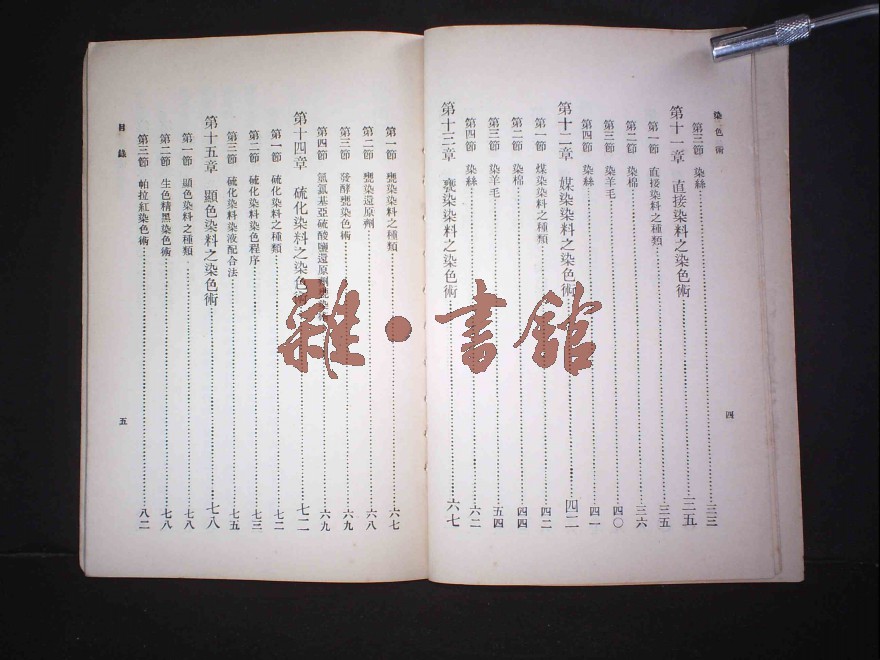 染色術
第三節 染絲……三三
第十一章 直接染料之染色術……三五
第一節 直接染料之種類……三五
第二節 染棉……三六
第三節 染羊毛……四〇
第四節 染絲……四一
第十二章 媒染染料之染色術……四二
第一節 媒染染料之種類……四二
第二節 染棉……四四
第三節 染羊毛……五四
第四節 染絲……六二
第十三章 甕染染料之染色術……六七
四
第一節 甕染染料之種類……六七
第二節 甕染還原劑……六八
第三節 發酵甕染色術……六九
第四節 亞硫酸鹽還原劑甕染……六九
第十四章 硫化染料之染色術……七二
第一節 硫化染料之種類……七二
第二節 硫化染料染色程序……七三
第三節 硫化染料染液配合法……七五
第十五章 顯色染料之染色術……七八
第一節 顯色染料之種類……七八
第二節 生色精黑染色術……七八
第三節 帕拉紅染色術……八二
目錄
五
雜·書館